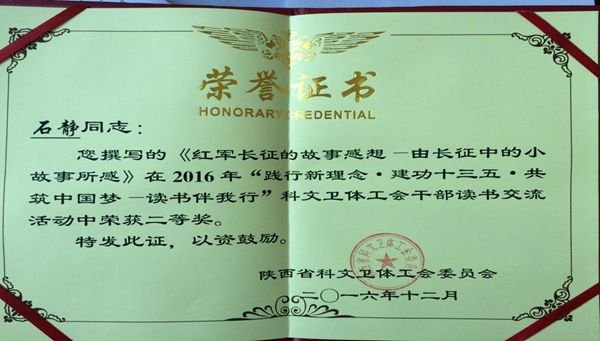 荣誉证书
HONORARY CREDENTIAL
石静同志：
您撰写的《红军长征的故事感想—由长征中的小
故事所感》在2016年“践行新理念·建功十三五·共
筑中国梦—读书伴我行”科文卫体工会干部读书交流
活动中荣获二等奖。
特发此证，以资鼓励。
陕西省科文卫体工会委员会
二〇一六年十二月